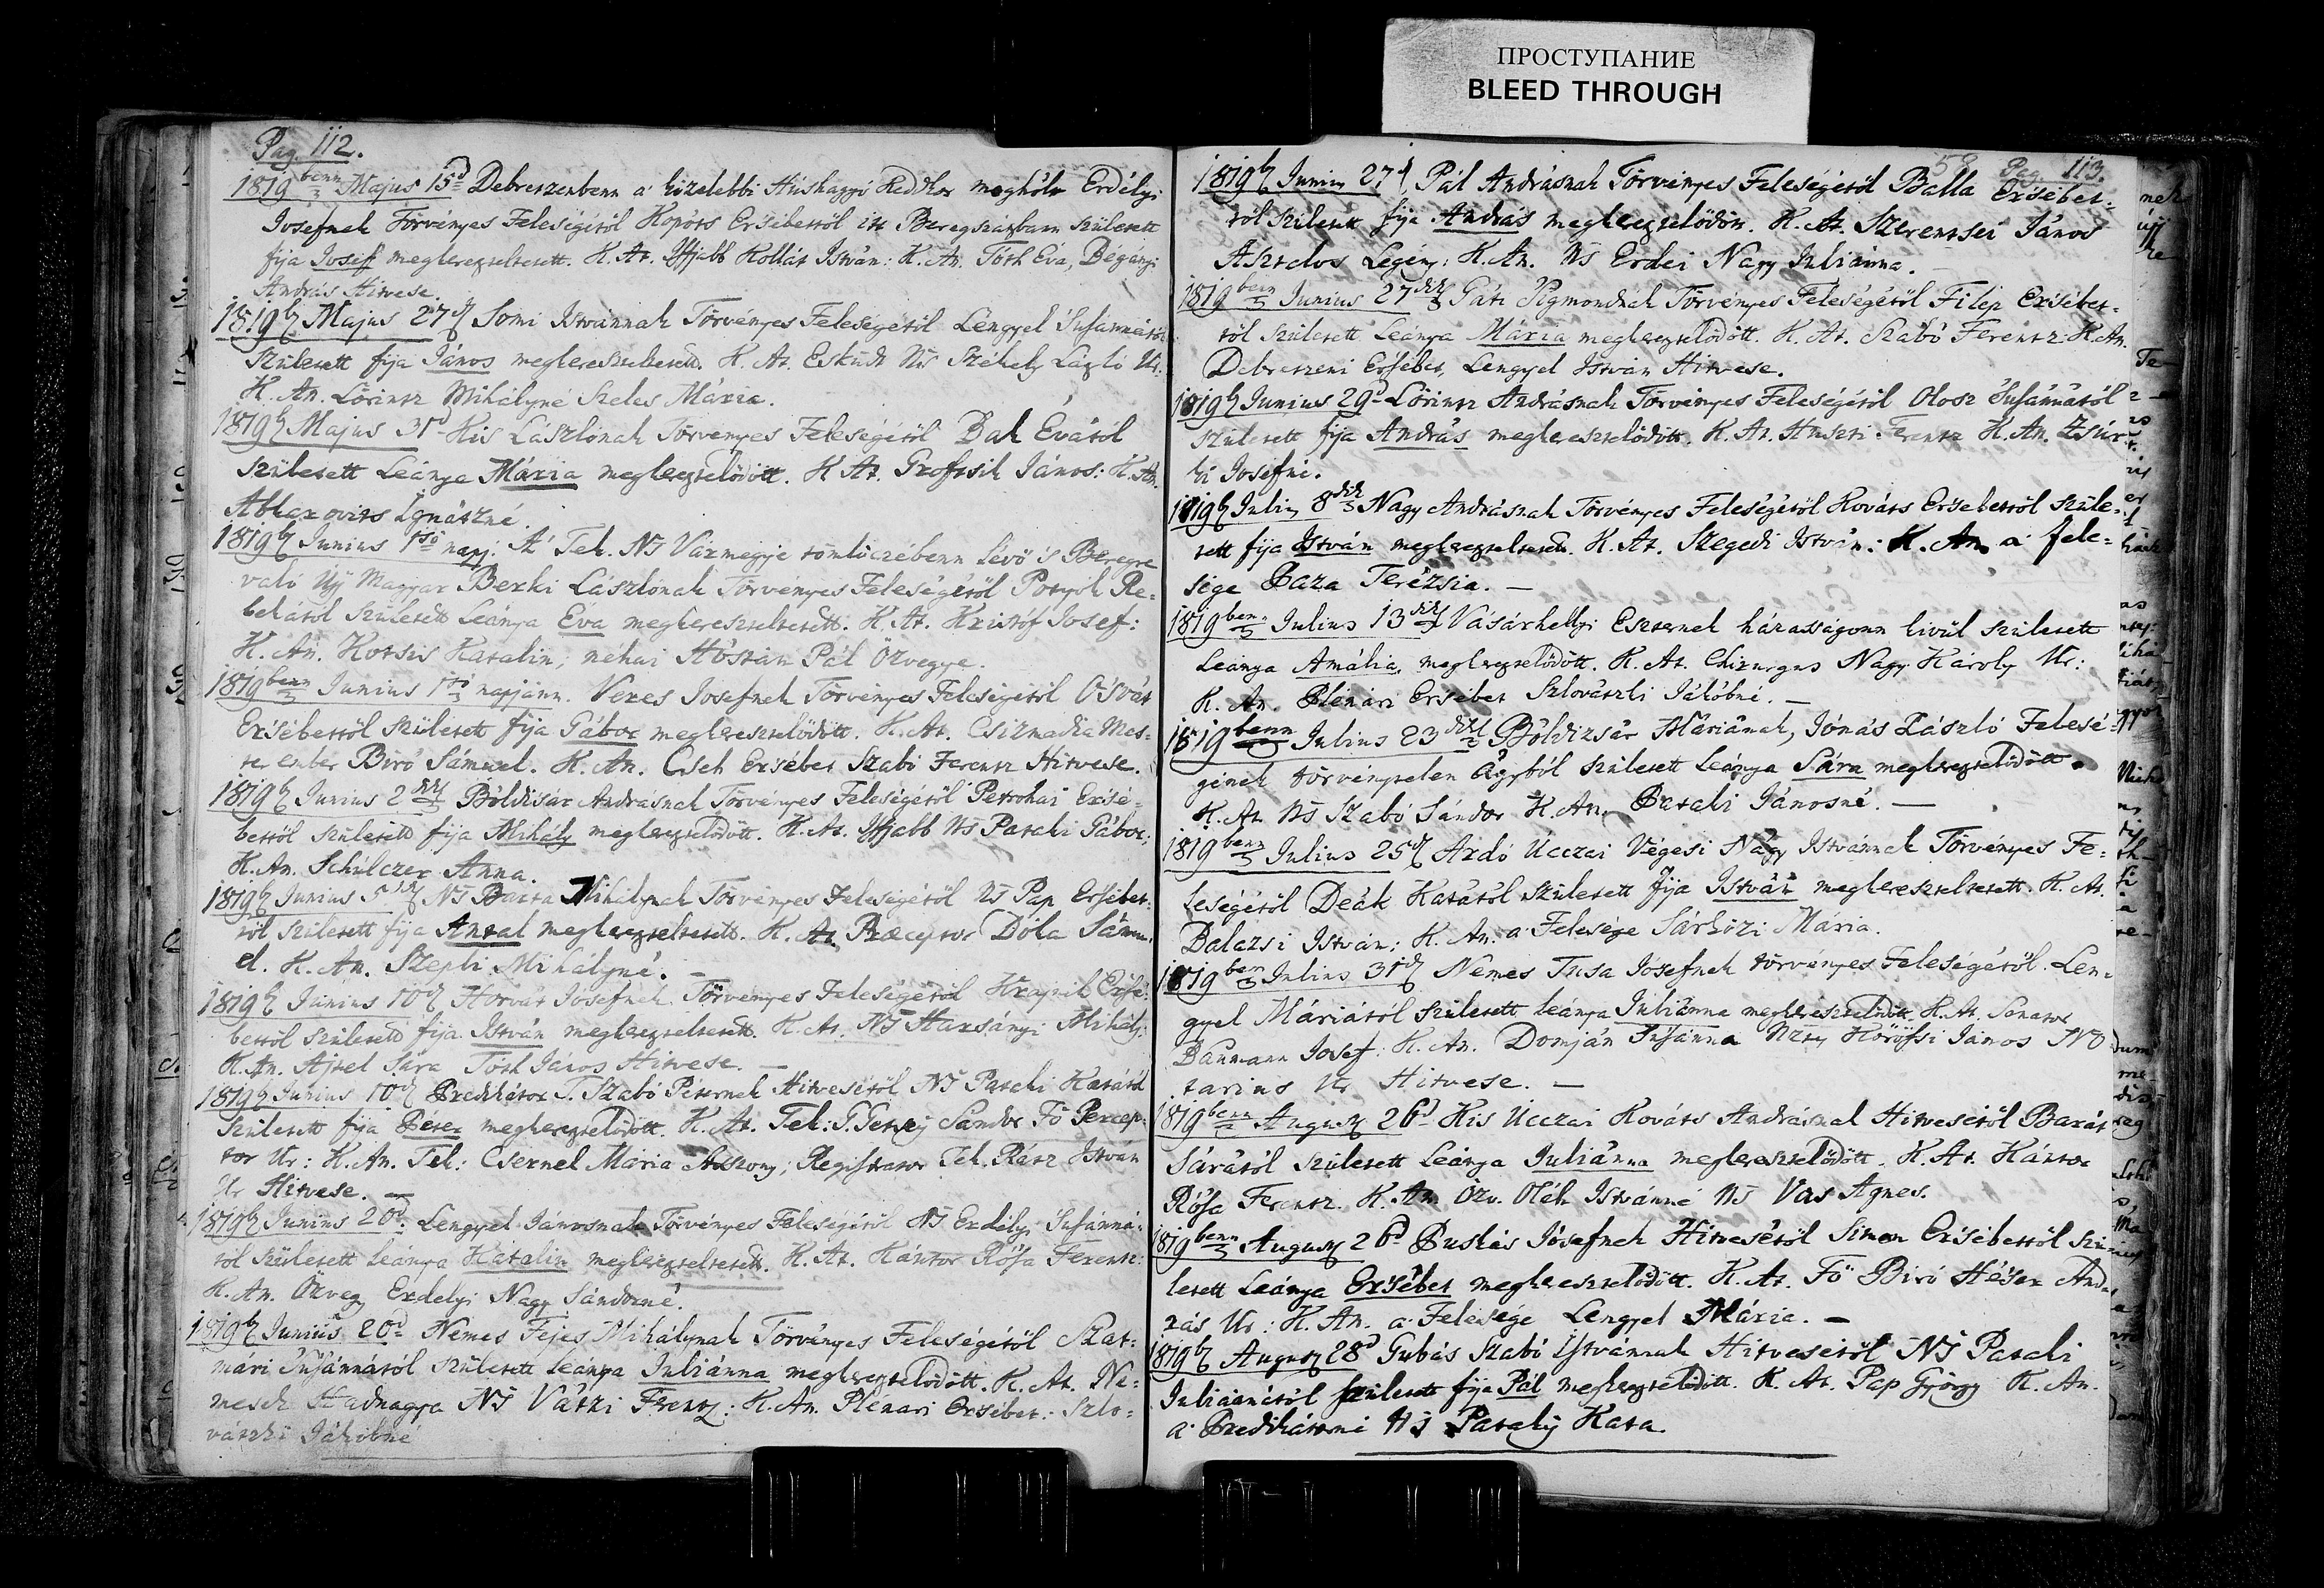 ПРОСТУПАНИЕ
BLEED THROUGH
Pag. 112.
1819benn Majus 15d Debreszenbenn a' közelebbi Húshagyó Kedden meghólt Erdélyi
Josefnek Törvényes Feleségétöl Kopóts Ersébettöl itt Beregszászbann született
fija Josef megkereszteltetett. K. At. Ifjabb Kollát István: K. An. Tóth Éva, Bégányi
András Hitvese.
1819b Majus 27d Somi Istvánnak Törvényes Feleségétöl Lengyel Susánnától
született fija János megkereszteltetett. K. At. Esküdt Ns Székely Lázló Ur.
K. An. Lörintz Mihályné Szeles Mária.
1819b Majus 31d Kis Lászlónak Törvényes Feleségétöl Bak Évától
született Leánya Mária megkeresztelödött. K. At. Proffsik János: K. An.
Ablaxovits Ignátzné.
1819b Junius 1sö napj. A' Tek. Ns Vármegye tömlöczébenn lévö 's Beregre
való Új Magyar Berki Lászlónak Törvényes Feleségétöl Potyók Re-
bekától született Leánya Éva megkereszteltetett. K. At. Kristóf Josef:
K. An. Kotsis Katalin, néhai Hóstán Pál Özvegye.
1819benn Junius 1sö napjánn. Veres Josefnek Törvényes Feleségétöl Osvát
Ersébettöl született fija Gábor megkeresztelödött. K. At. Csizmadia Mes-
ter ember Biró Sámuel. K. An. Cseh Ersébet Szabó Ferentz Hitvese.
1819b Junius 2dik Böldisár Andrásnak Törvényes Feleségétöl Petrohai Ersé-
bettöl született fija Mihály megkeresztelödött. K. At. Ifjabb Ns Pataki Gábor,
K. An. Schülczer Anna.
1819b Junius 5dik Ns Barta Mihálynak Törvényes Feleségétöl Ns Pap Ersébet-
töl született fija Antal megkereszteltetett. K. At. Præceptor Dóla Sámu-
el. K. An. Szepli Mihályné. —
1819b Junius 10d Horvát Josefnek Törvényes Feleségétöl Krapil Ersé-
bettöl született fija István megkereszteltetett. K. At. Ns Harsányi Mihály:
K. An. Ajtel Sára Tóth János Hitvese. —
1819b Junius 10d Prédikátor T. Szabó Péternek Hitvesétöl Ns Pataki Katától
született fija Péter megkeresztelödött. K. At. Tek: P. Getzey Sándor Fö Percep-
tor Ur: K. An. Tek: Csernel Mária Asszony; Registrator Tek. Rátz István
Ur Hitvese. —
1819b Junius 20d. Lengyel Jánosnak Törvényes Feleségétöl Ns Erdélyi Susánná-
tól született Leánya Katalin megkereszteltetett. K. At. Kántor Rósa Ferentz:
K. An. Özvegy Erdelyi Nagy Sándorné.
1819b Junius 20d Nemes Fejes Mihálynak Törvényes Feleségétöl Szat-
mári Susánnától született Leánya Juliánna megkeresztelödött. K. At. Ne-
mesek Hadnagya Ns Vátzi Ferentz: K. An. Plénari Ersébet: Szlo-
vátzki Jákobné
58 Pag. 113.
1819b Junius 27d Pál Andrásnak Törvényes Feleségétöl Balla Ersébet-
töl született fija András megkeresztelödött. K. At. Szerentsei János
Asztalos Legény: K. An. Ns Erdei Nagy Juliánna.
1819benn Junius 27dik Gáti Sigmondnak Törvényes Feleségétöl Filep Ersébet-
töl született Leánya Mária megkeresztelödött. K. At. Szabó Ferentz: K. An.
Debreszeni Ersébet, Lengyel István Hitvese.
1819b Junius 29d Lörintz Andrásnak Törvényes Feleségétöl Olosz Susánnától
született fija András megkeresztelödött. K. At. Huszti Ferentz K. An. Zsúr-
ki Josefné.
1819b Julius 8dik Nagy Andrásnak Törvényes Feleségétöl Kováts Ersébettöl szüle-
tett fija István megkereszteltetett. K. At. Szegedi István: K. An. a' fele-
sége Paza Terézsia. —
1819benn Julius 13dik Vásárhellyi Eszternek házasságonn kivül született
Leánya Amália, megkeresztelödött. K. At. Chirurgus Nagy Károly Ur:
K. An. Plénári Ersébet Szlovátzki Jákóbné. —
1819benn Julius 23dik Böldizsár Máriának, Jónás László Felesé-
gének törvénytelen ágyból született Leánya Sára megkeresztelödött.
K. At. Ns Szabó Sándor K. An. Pataki Jánosné. —
1819benn Julius 25d Ardó Uczai Végesi Nagy Istvánnak Törvényes Fe-
leségétöl Deák Katától született fija István megkereszteltetett. K. At.
Balazsi István: K. An. a' Felesége Sárközi Mária.
1819ben Julius 31d Nemes Tusa Jósefnek törvényes Feleségétöl Len-
gyel Máriától született leánya Juliánna megkeresztelödött. K. At. Senator
Baumann Josef: K. An. Domján Susánna Körössi János No
tarius Ur Hitvese. —
1819benn August 26d Kis Uczai Kováts Andrásnak Hitvesétöl Barát
Sárától született Leánya Juliánna megkeresztelödött. K. At. Kántor
Rósa Ferentz. K. An Özv. Oláh Istvánné Ns Vas Agnes.
1819benn August 26d Puskás Jósefnek Hitvesétöl Simon Ersébettöl szü-
letett Leánya Ersébet megkeresztelödött. K. At. Fö Biró Héder And-
rás Ur: K. An. a' Felesége Lengyel Mária. —
1819b August 28d Gubás Szabó Istvánnak Hitvesétöl Ns Pataki
Juliannától született fija Pál megkeresztelödött. K. At. Pap György K. An.
a' Prédikátorné Ns Pataky Kata.